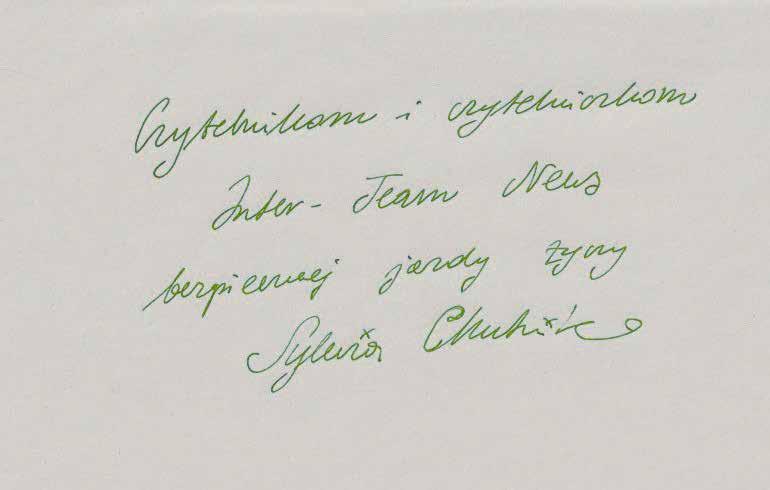 Czytelnikom i czytelniczkom
Inter-Team News
bezpiecznej jazdy życzy
Sylwia Chutnik